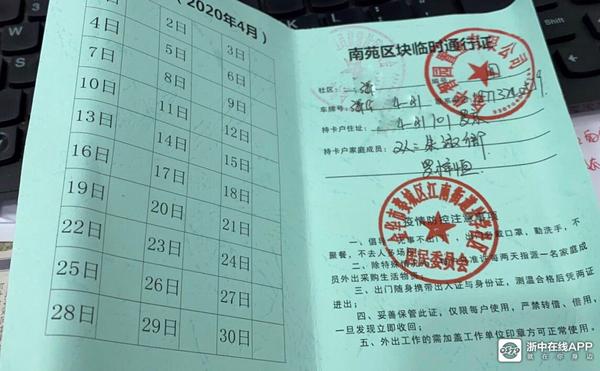 （2020年4月）
2日 3日
4日 5日 6日
7日 8日 9日
10日 11日 12日
13日 14日 15日
16日 17日 18日
19日 20日 21日
22日 23日 24日
25日 26日 27日
28日 29日 30日
南苑区块临时通行证
社区：
车牌号：
持卡户住址：
持卡户家庭成员：
金华市婺城区江南街道
居民委员会
疫情防控注意事项
一、倡导 无事不出门， 戴口罩，勤洗手，不
聚餐，不去人多场
二、除特殊情 准许每两天指派一名家庭成
员外出采购生活物资。
三、出门随身携带出入证与身份证，测温合格后凭两证
进出；
四、妥善保管此证，仅限每户使用，严禁转借，借用，
一旦发现立即收回；
五、外出工作的需加盖工作单位印章方可正常使用。
浙中在线APP
就在你身边